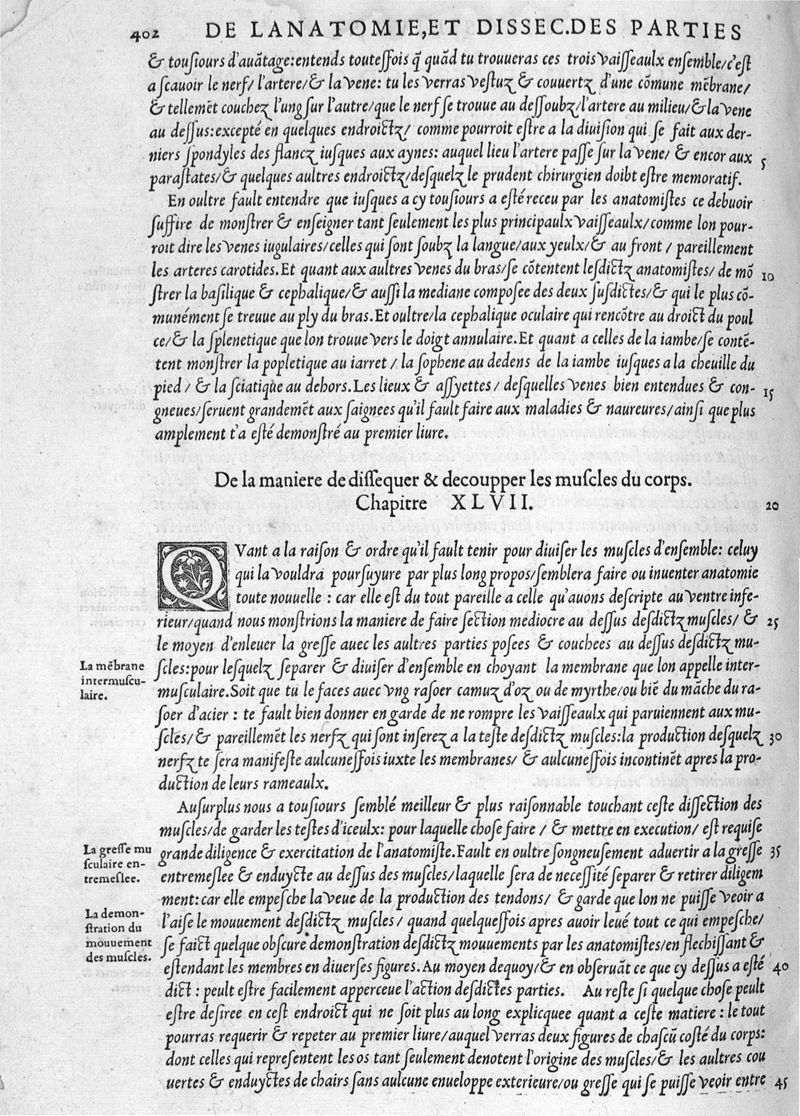 402 DE LANATOMIE, ET DISSEC. DES PARTIES
& touſiours d'auãtage: entends touteſſois q̃ quãd tu trouueras ces trois vaiſſeaulx enſemble/c'eſt
a ſcauoir le nerf/ l'artere/& la vene: tu les verras veſtuz & couuertz d'une cõmune mẽbrane/
& tellemẽt couchez l'ung ſur l'autre/que le nerf ſe trouue au deſſoubz/l'artere au milieu/& la vene
au deſſus: excepté en quelques endroictz/ comme pourroit eſtre a la diuiſion qui ſe fait aux der-
niers ſpondyles des flancz iuſques aux aynes: auquel lieu l'artere paſſe ſur la vene/ & encor aux 5
paraſtates/& quelques aultres endroictz/deſquelz le prudent chirurgien doibt eſtre memoratif.
En oultre fault entendre que iuſques a cy touſiours a eſté receu par les anatomiſtes ce debuoir
ſuffire de monſtrer & enſeigner tant ſeulement les plus principaulx vaiſſeaulx/comme lon pour-
roit dire les venes iugulaires/celles qui ſont ſoubz la langue/aux yeulx/& au front / pareillement
les arteres carotides. Et quant aux aultres venes du bras/ſe cõtentent leſdictz anatomiſtes/ de mõ 10
ſtrer la baſilique & cephalique/& auſſi la mediane compoſee des deux ſuſdictes/& qui le plus cõ-
munément ſe treuue au ply du bras. Et oultre/la cephalique oculaire qui rencõtre au droict du poul
ce/& la ſplenetique que lon trouue vers le doigt annulaire. Et quant a celles de la iambe/ſe contẽ-
tent monſtrer la popletique au iarret / la ſophene au dedens de la iambe iuſques a la cheuille du
pied / & la ſciatique au dehors. Les lieux & aſſyettes / deſquelles venes bien entendues & con- 15
gneues/ſeruent grandemẽt aux ſaignees qu'il fault faire aux maladies & naureures/ainſi que plus
amplement t'a eſté demonſtré au premier liure.
De la maniere de diſſequer & decoupper les muſcles du corps.
Chapitre XLVII. 20
QVant a la raiſon & ordre qu'il fault tenir pour diuiſer les muſcles d'enſemble: celuy
qui la vouldra pourſuyure par plus long propos/ſemblera faire ou inuenter anatomie
toute nouuelle : car elle eſt du tout pareille a celle qu'auons deſcripte au ventre infe-
rieur/quand nous monſtrions la maniere de faire ſection mediocre au deſſus deſdictz muſcles/ & 25
le moyen d'enleuer la greſſe auec les aultres parties poſees & couchees au deſſus deſdictz mu-
La mẽbrane
intermuſcu-
laire.
ſcles: pour leſquelz ſeparer & diuiſer d'enſemble en choyant la membrane que lon appelle inter-
muſculaire. Soit que tu le faces auec vng raſoer camuz d'oz ou de myrthe/ou biẽ du mãche du ra-
ſoer d'acier : te fault bien donner en garde de ne rompre les vaiſſeaulx qui paruiennent aux mu-
ſcles/ & pareillemẽt les nerfz qui sont inſerez a la teſte deſdictz muſcles: la production deſquelz 30
nerfz te ſera manifeſte aulcuneſſois iuxte les membranes/ & aulcuneſſois incontinẽt apres la pro-
duction de leurs rameaulx.
Auſurplus nous a touſiours ſemblé meilleur & plus raiſonnable touchant ceſte diſſection des
muſcles/de garder les teſtes d'iceulx: pour laquelle choſe faire / & mettre en execution/ eſt requiſe
La greſſe mu
ſculaire en-
tremeſlee.
grande diligence & exercitation de l'anatomiſte. Fault en oultre ſongneuſement aduertir a la greſſe 35
entremeſlee & enduycte au deſſus des muſcles/laquelle ſera de neceſſité ſeparer & retirer diligem
ment: car elle empeſche la veue de la production des tendons/ & garde que lon ne puiſſe veoir a
La demon-
ſtration du
mouuement
des muſcles.
l'aiſe le mouuement deſdictz muſcles/ quand quelqueſſois apres auoir leué tout ce qui empeſche/
ſe faict quelque obſcure demonſtration deſdictz mouuements par les anatomiſtes/en flechiſſant &
eſtendant les membres en diuerſes figures. Au moyen dequoy/& en obſeruãt ce que cy deſſus a eſté 40
dict : peult eſtre facilement apperceue l'action deſdictes parties. Au reſte ſi quelque choſe peult
eſtre deſiree en ceſt endroict qui ne ſoit plus au long explicquee quant a ceſte matiere : le tout
pourras requerir & repeter au premier liure/auquel verras deux figures de chaſcũ coſté du corps:
dont celles qui repreſentent les os tant ſeulement denotent l'origine des muſcles/& les aultres cou
uertes & enduyctes de chairs ſans aulcune enueloppe exterieure/ou greſſe qui ſe puiſſe veoir entre 45